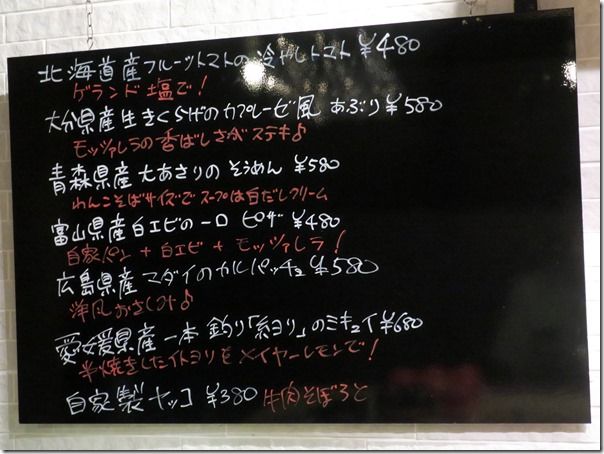 北海道産フルーツトマトの冷やしトマト ¥480
ゲランド塩で!
大分県産生きくらげのカプレーゼ風 あぶり¥580
モッツァレラの香ばしさがステキ♪
青森県産大あさりのそうめん ¥580
わんこそばサイズでスープは白だしクリーム
富山県産白エビの一口ピザ ¥480
自家パン+白エビ+モッツァレラ!
広島県産マダイのカルパッチョ ¥580
洋風おさしみ♪
愛媛県産一本釣り「糸ヨリ」のミキュイ¥680
半焼きしたイトヨリをメイヤーレモンで!
自家製ヤッコ ¥380 牛肉そぼろと